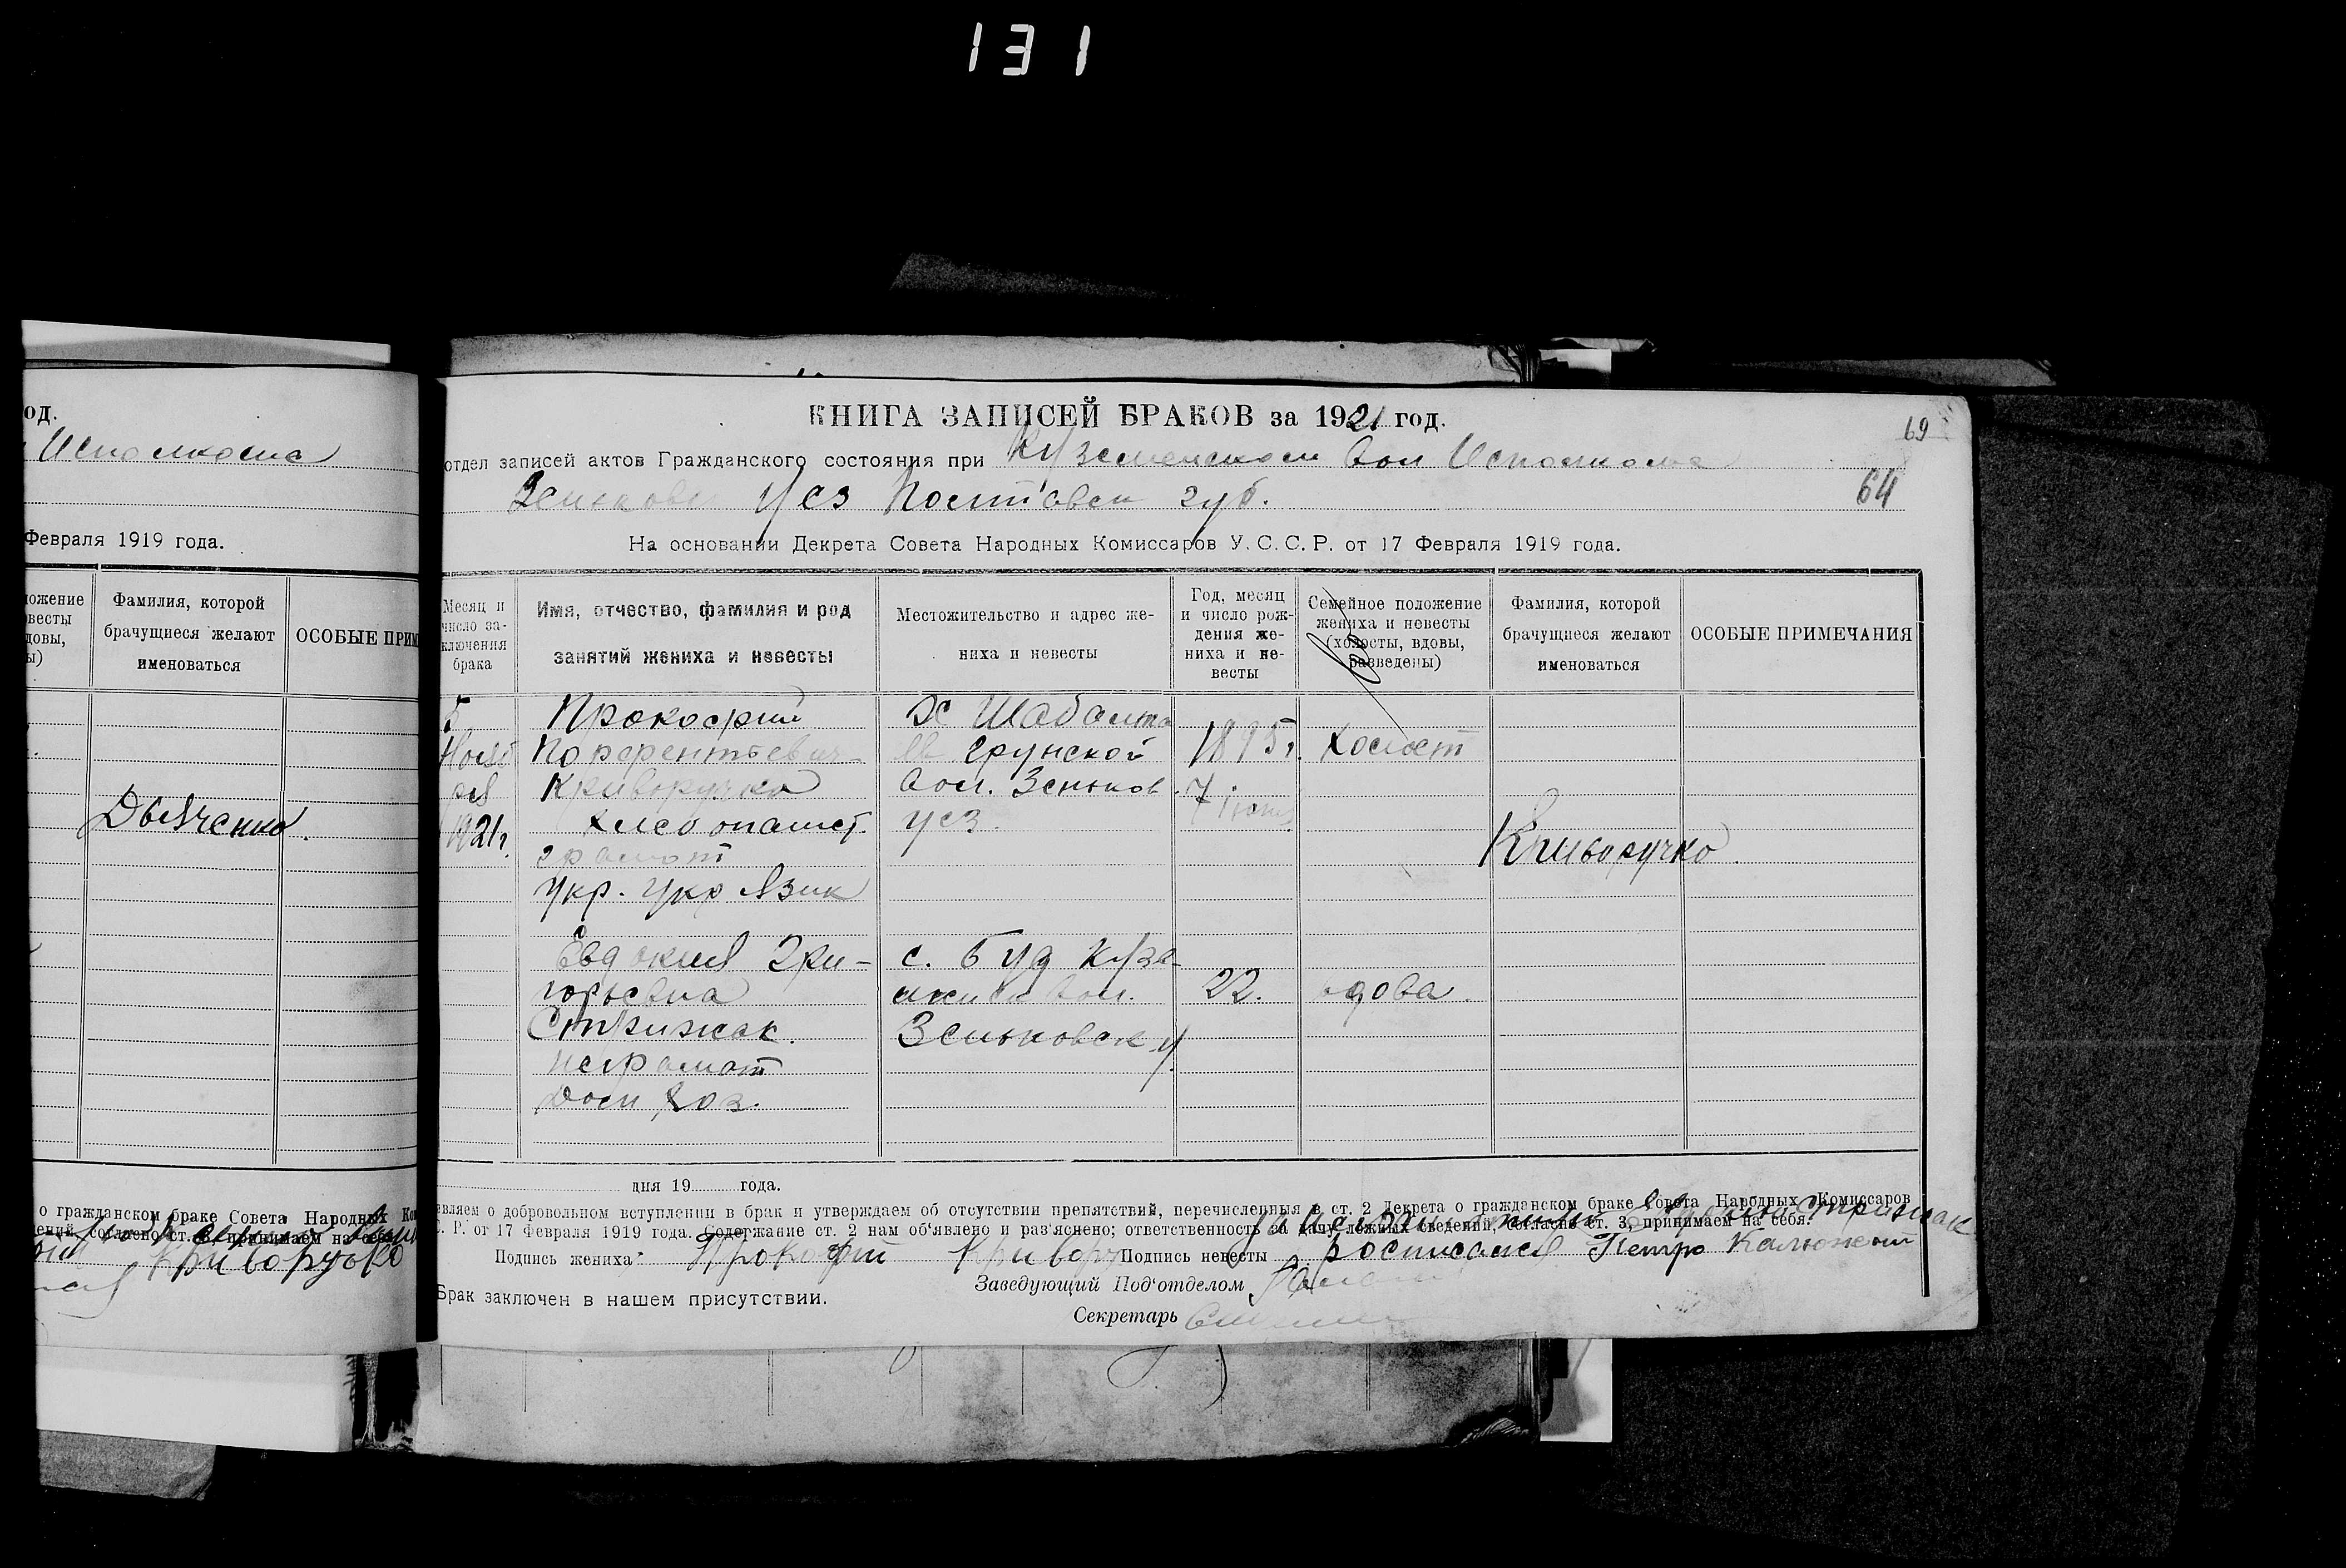 131
од.
Исполкома
Февраля 1919 года.
Фамилия, которой
брачущиеся желают
именоваться
ОСОБЫЕ ПРИМ
Дьяченко.
о гражданском браке Совета Народных Ко
Криворучко
КНИГА ЗАПИСЕЙ БРАКОВ за 1921 год.
69
отдел записей актов Гражданского состояния при Куземенском Вол Исполкоме
64
Зеньковс Уез Полтавск губ.
На основании Декрета Совета Народных Комиссаров У. С. С. Р. от 17 Февраля 1919 года.
Месяц и число заключения брака
Имя, отчество, фамилия и род
занятий жениха и невесты
Местожительство и адрес же-
ниха и невесты
Год, месяц
и число рож-
дения же-
ниха и не-
весты
Семейное положение
жениха и невесты
(холосты, вдовы,
разведены)
Фамилия, которой
брачущиеся желают
именоваться
ОСОБЫЕ ПРИМЕЧАНИЯ
5
Нояб
ря
1921г.
Прокофий
Парфентьевич
Криворучко
хлебопашец.
грамот
Укр. Укр Язик
Грунской
Вол. Зеньков.
уез.
1895г.
7
холост
Криворучко
Евдокия Гри-
горьевна
Стрижак.
неграмот
Дом. хоз.
с. Буд Кузе-
Вол.
Зеньковск у.
22.
вдова.
дня 19 года.
вляем о добровольном вступлении в брак и утверждаем об отсутствии препятствий, перечисленных в ст. 2 Декрета о гражданском браке Совета Народных Комиссаров
С. Р. от 17 Февраля 1919 года. Содержание ст. 2 нам об'явлено и раз'яснено; ответственность за дачу ложных сведений, согласно ст. 3, принимаем на себя.
Стрижак
Подпись жениха: Прокофий Кривору Подпись невесты росписался Петро Калюжний
Заведующий Под'отделом
Брак заключен в нашем присутствии.
Секретарь